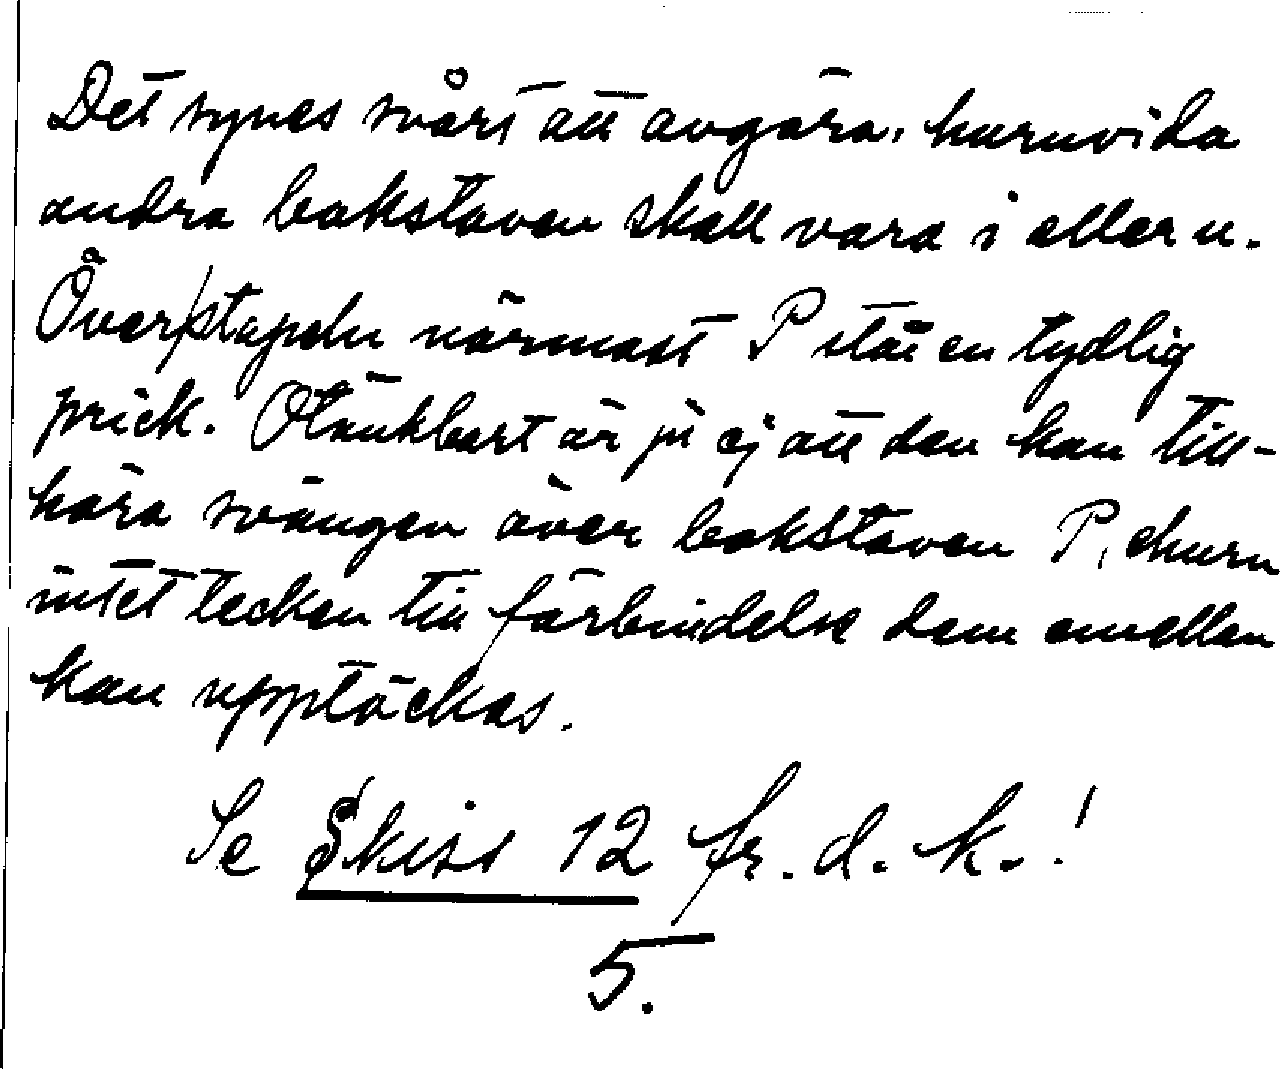 Det synes svårt att avgöra, huruvida
andra bokstaven skall vara i eller u.
Över stapeln närmast P står en tydlig
prick. Otänkbart är ju ej att den kan till-
höra svängen över bokstaven P, ehuru
intet tecken till förbindelse dem emellan
kan upptäckas.
Se Skiss 12 fr. d. k.!
5.